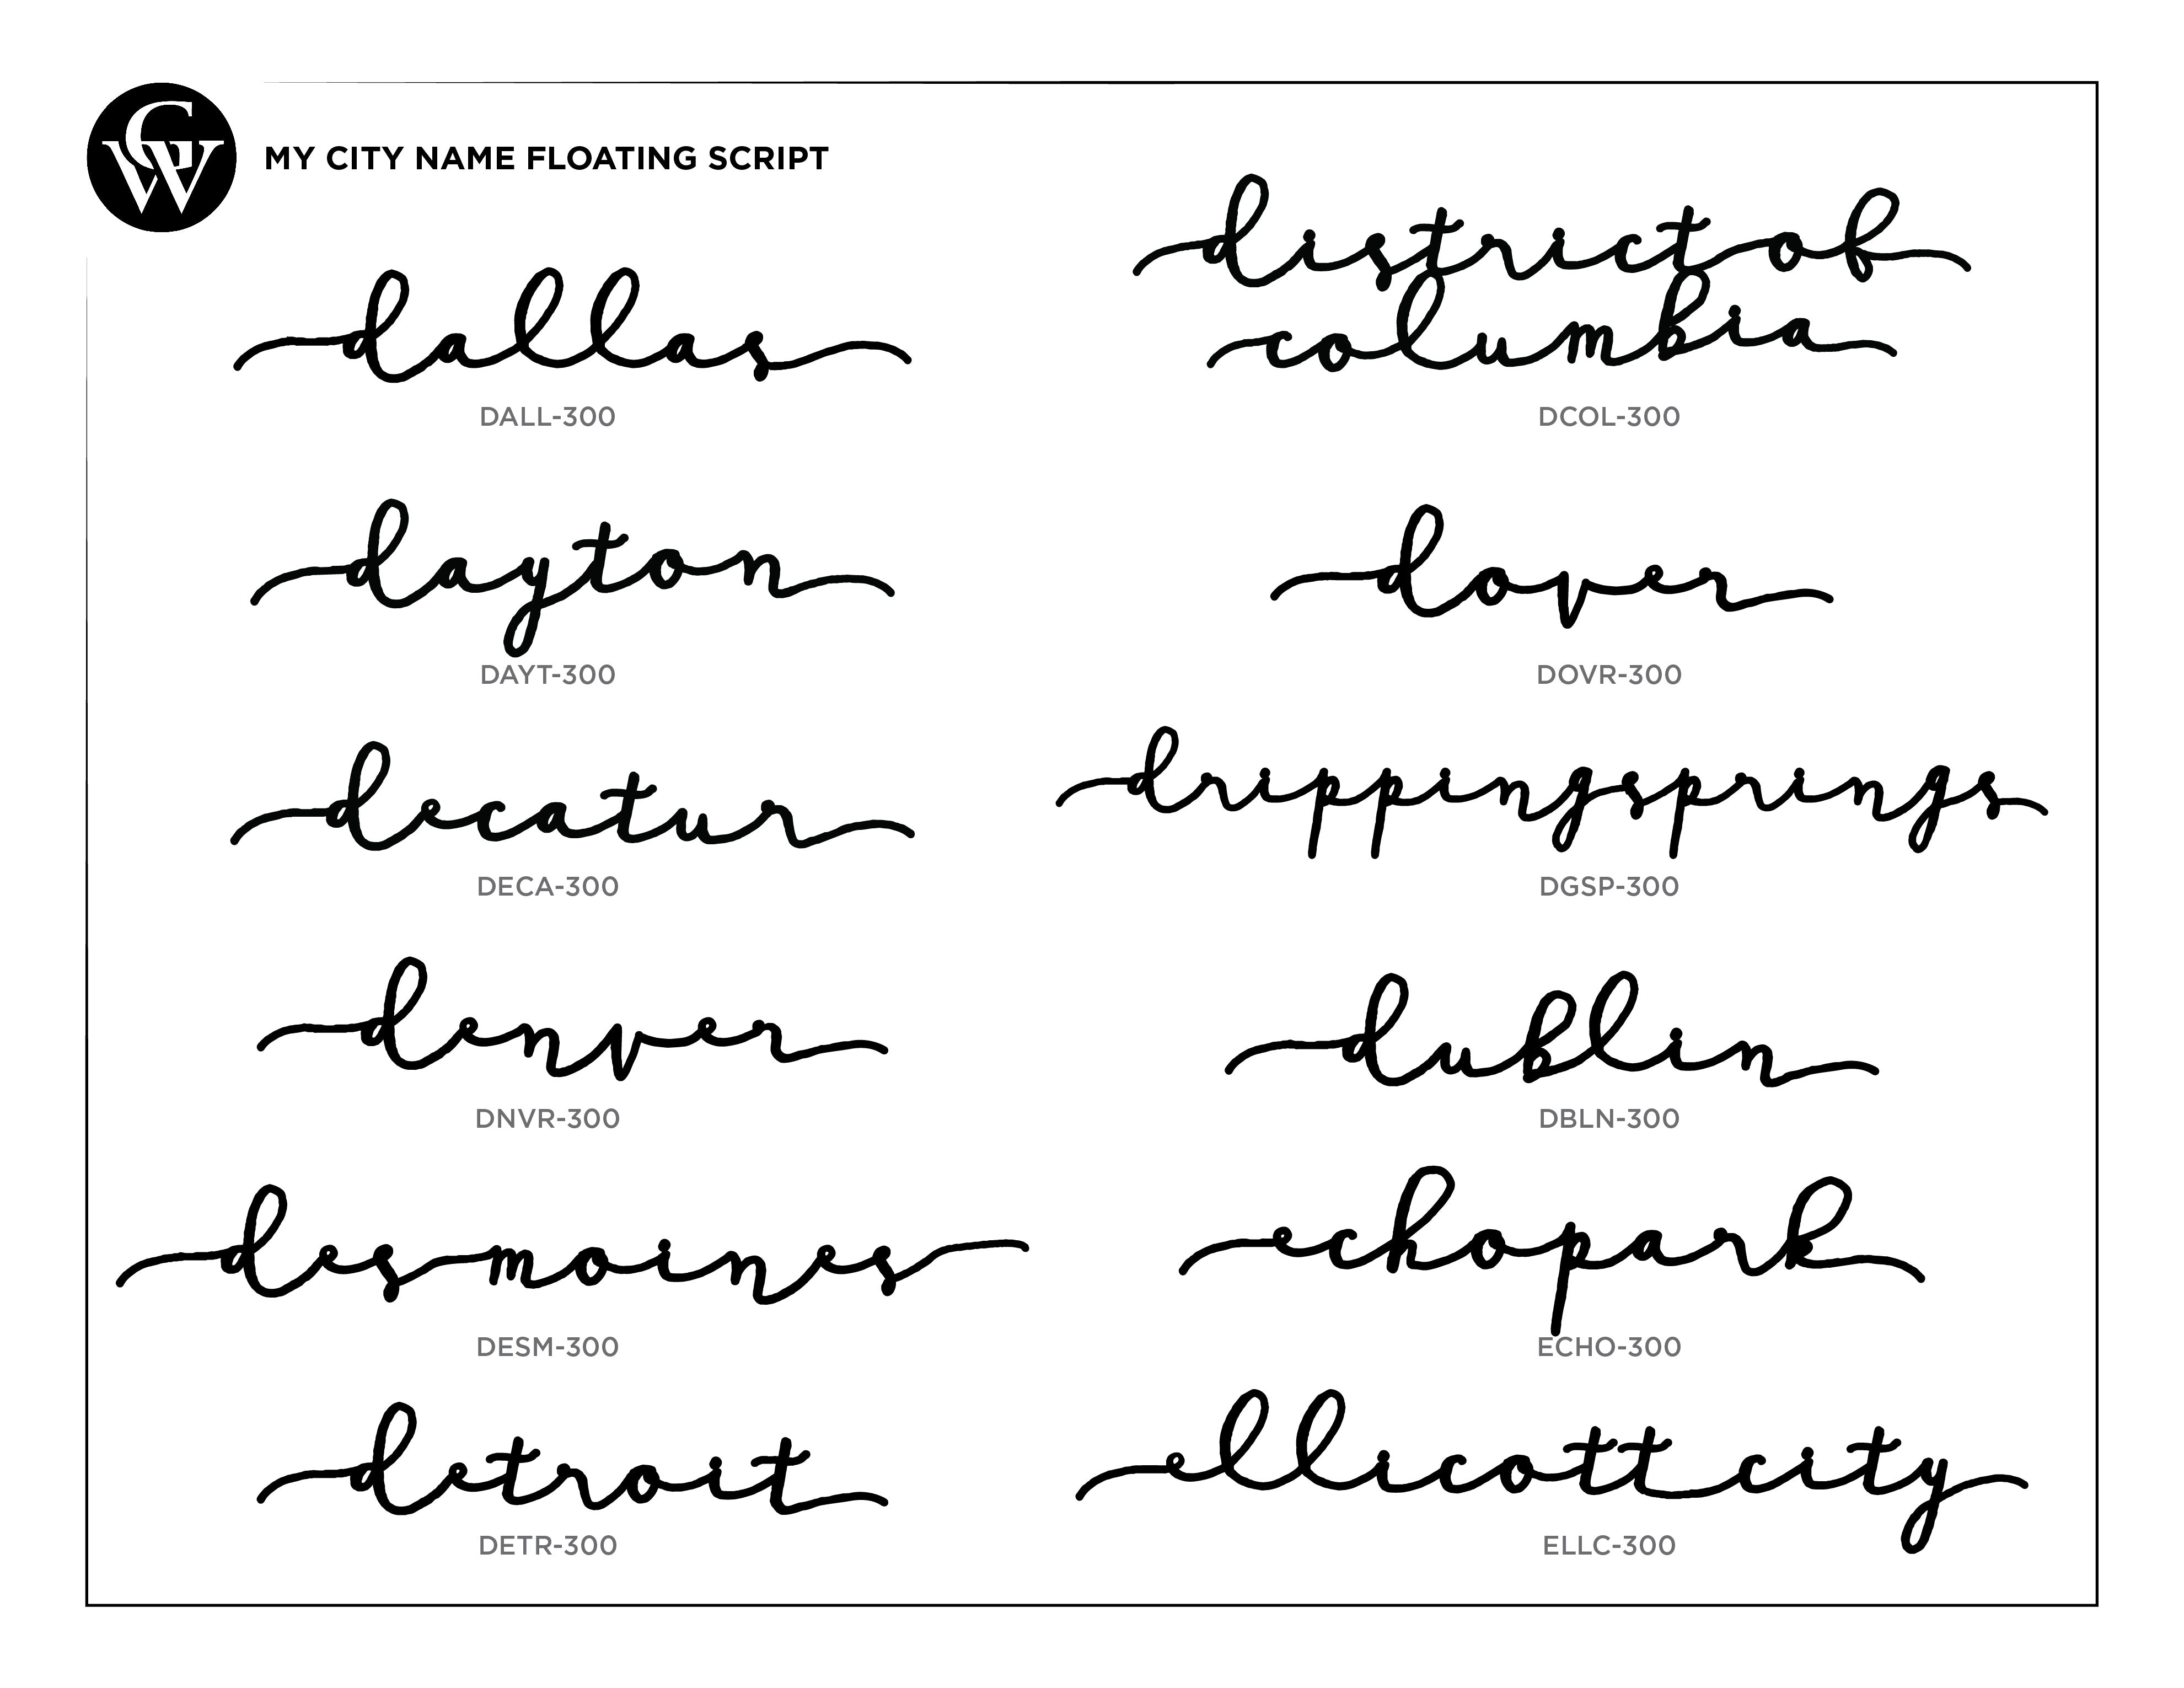 CW
MY CITY NAME FLOATING SCRIPT
dallas
DALL-300
dayton
DAYT-300
decatur
DECA-300
denver
DNVR-300
desmoines
DESM-300
detroit
DETR-300
districtof
columbia
DCOL-300
dover
DOVR-300
drippingsprings
DGSP-300
dublin
DBLN-300
echopark
ECHO-300
ellicottcity
ELLC-300